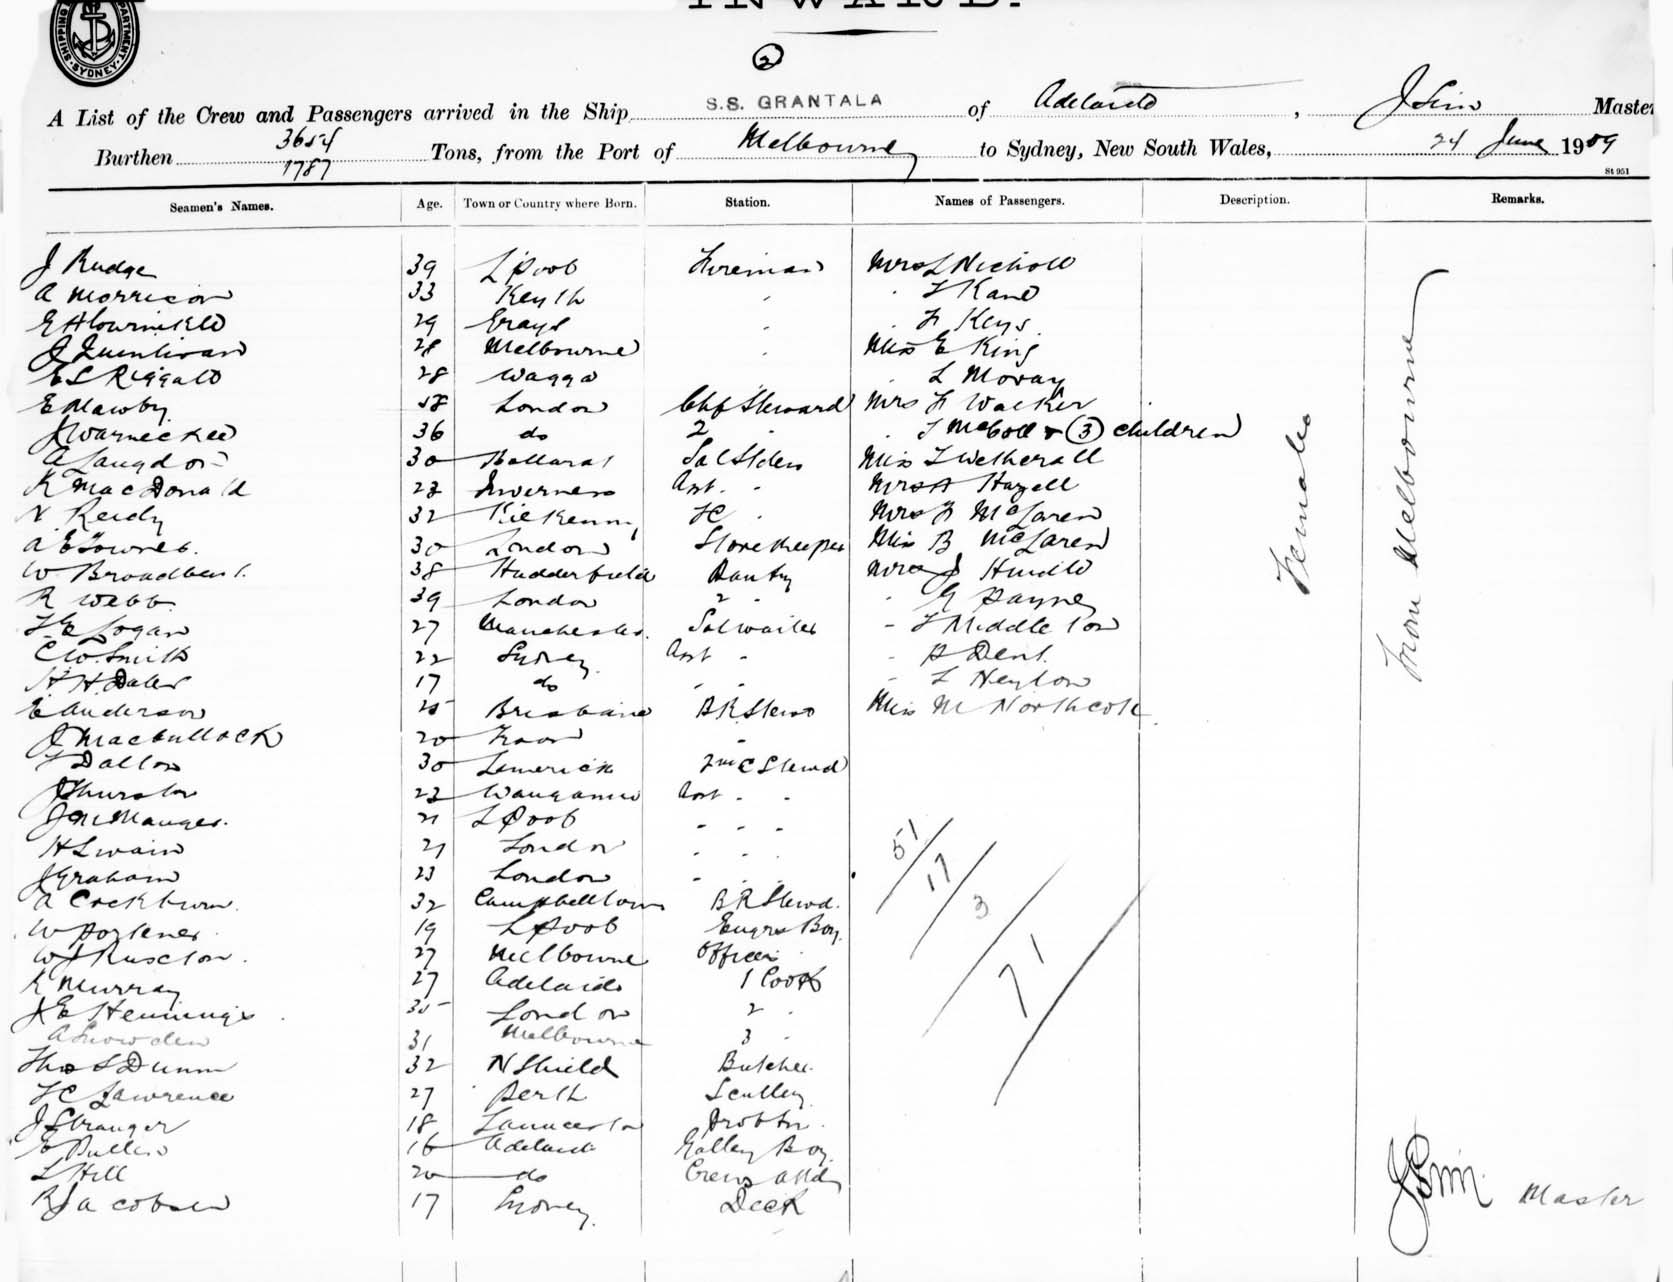 SHIPPING DEPARTMENT. SYDNEY.
INWARD.
2
A List of the Crew and Passengers arrived in the Ship S.S. GRANTALA of Adelaide, J Sim Master
Burthen 3654 Tons, from the Port of Melbourne to Sydney, New South Wales, 24 June 1909
1787
St 951
Seamen's Names. Age. Town or Country where Born. Station. Names of Passengers. Description. Remarks.
J Rudge 39 L'pool Fireman Mrs L Nicholl
A Morrison 33 Keyth " " F Kane
29 Grays " " F Keys
J Quinlivan 28 Melbourne " Miss E King
28 Wagga " L Moray
E Mawby 58 London Chf Steward Mrs F Walker
J Warnecke 36 do 2 " " McColl & (3) children
A Langdon 30 Ballarat Sal Miss Wetherall
K MacDonald 23 Inverness Asst. " Mrs A Hazell
N Reidy 32 Kilkenny " Mrs F McLaren
A E Townes. 30 London Storekeeper Miss B McLaren
W. Broadbent. 38 Hudderfield Pantry Mrs J
R Webb 39 London 2 " " G Payne
Logan 27 Manchester. Sal waiter " Middleton
C W. Smith 22 Sydney. Asst " " Dent.
H H. Dales 17 do " " " L
E Anderson 25 Brisbane B R Stewd Miss M Northcote
J MacCullock 20 "
Dalton 30 Limerick 2nd C Stewd
J Thurston 23 Wanganui Asst " "
J M Mauger. 21 L'pool " " "
H Swain 21 London " " "
J Graham 23 London " " "
A Cockburn. 32 Campbelltown B R Stewd.
W 19 L'pool Engrs Boy.
W J Ruxton. 27 Melbourne Officers "
K Murray 27 Adelaide 1 Cook
J E Hennings 35 London 2 "
A Snowden 31 Melbourne 3 "
Thos S Dunn 32 N Shield Butcher
Lawrence 27 Perth Sculley
J Stranger 18 Launceston
E Pullen 16 Adelaide Galley Boy.
L Hill 20 do Crews attd
R Jacobsen 17 Sydney. Deck
Females
From Melbourne
51/17/3/71
J Sim Master